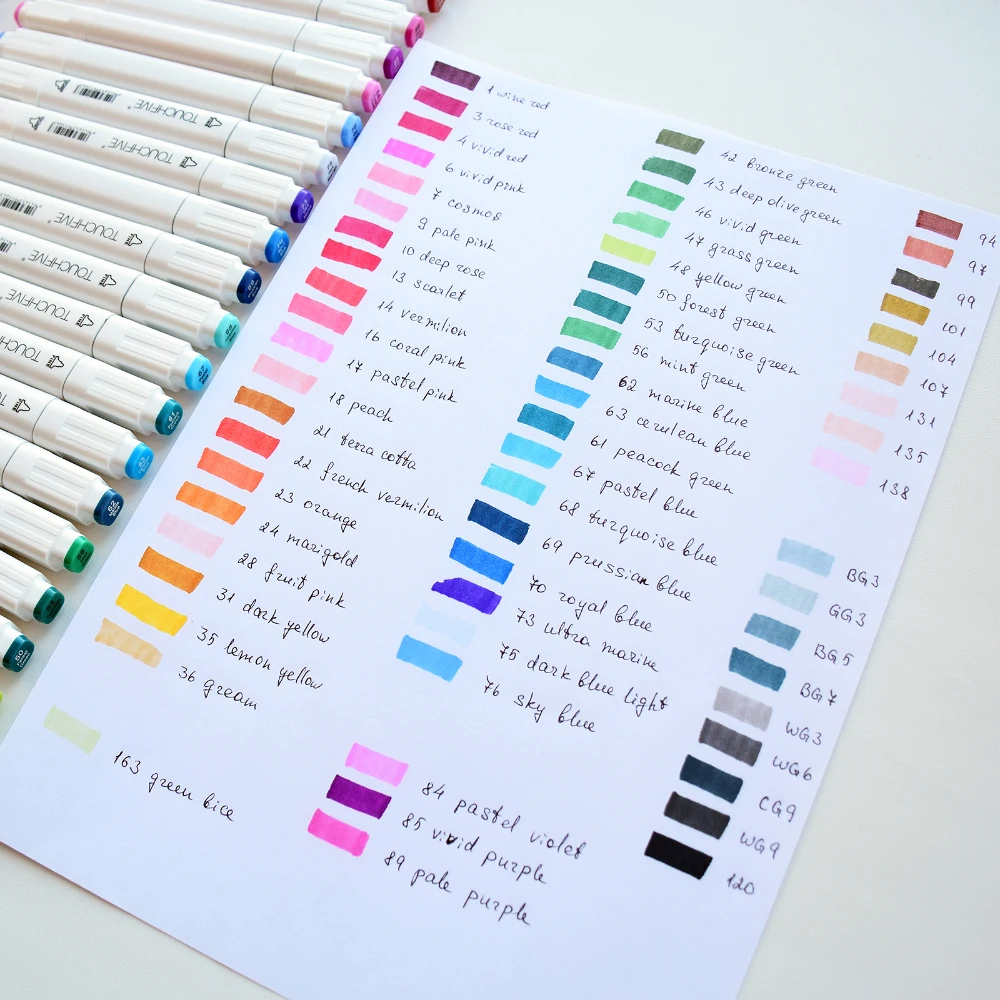 1 wine red
3 rose red
4 vivid red
6 vivid pink
7 cosmos
9 pale pink
10 deep rose
13 scarlet
14 vermilion
16 coral pink
17 pastel pink
18 peach
21 terra cotta
22 french vermilion
23 orange
24 marigold
28 fruit pink
31 dark yellow
35 lemon yellow
36 gream
163 green bice
42 bronze green
43 deep olive green
46 vivid green
47 grass green
48 yellow green
50 forest green
53 turquoise green
56 mint green
62 marine blue
63 cerulean blue
61 peacock green
67 pastel blue
68 turquoise blue
69 prussian blue
70 royal blue
73 ultra marine
75 dark blue light
76 sky blue
84 pastel violet
85 vivid purple
89 pale purple
94
97
99
101
104
107
131
135
138
BG3
GG3
BG5
BG7
WG3
WG6
CG9
WG9
120
TOUCHFIVE
TOUCHFIVE
TOUCHFIVE
TOUCHFIVE
TOUCHFIVE
TOUCHFIVE